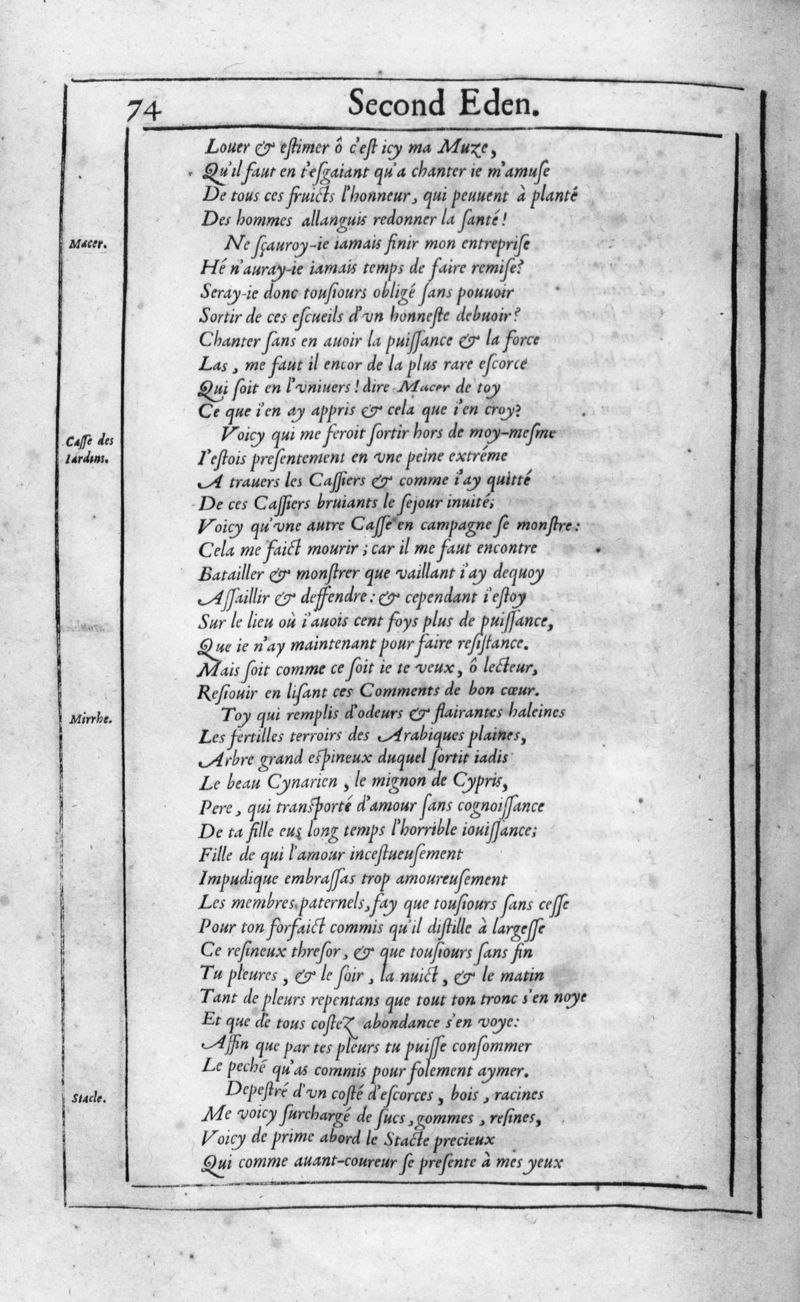 74 Second Eden.
Louer & eſtimer ô c'eſt icy ma Muze,
Qu'il faut en t'eſgaiant qu'a chanter ie m'amuſe
De tous ces fruicts l'honneur, qui peuuent à planté
Des hommes allanguis redonner la ſanté!
Macer.
Ne ſçauroy-ie iamais finir mon entrepriſe
Hé n'auray-ie iamais temps de faire remiſe?
Seray-ie donc touſiours obligé ſans pouuoir
Sortir de ces eſcueils d'vn honneſte debuoir?
Chanter ſans en auoir la puiſſance & la force
Las, me faut il encor de la plus rare eſcorce
Qui ſoit en l'vniuers! dire Macer de toy
Ce que i'en ay appris & cela que i'en croy?
Caſſe des
Iardins.
Voicy qui me feroit ſortir hors de moy-meſme
I'eſtois preſentement en vne peine extréme
A trauers les Caſſiers & comme i'ay quitté
De ces Caſſiers bruiants le ſejour inuité;
Voicy qu'vne autre Caſſe en campagne ſe monſtre:
Cela me faict mourir; car il me faut encontre
Batailler & monſtrer que vaillant i'ay dequoy
Aſſaillir & deffendre: & cependant i'eſtoy
Sur le lieu où i'auois cent foys plus de puiſſance,
Que ie n'ay maintenant pour faire reſiſtance.
Mais ſoit comme ce ſoit ie te veux, ô lecteur,
Reſiouir en liſant ces Comments de bon cœur.
Mirrhe.
Toy qui remplis d'odeurs & flairantes haleines
Les fertilles terroirs des Arabiques plaines,
Arbre grand eſpineux duquel ſortit iadis
Le beau Cynarien, le mignon de Cypris,
Pere, qui tranſporté d'amour ſans cognoiſſance
De ta fille eus long temps l'horrible iouiſſance;
Fille de qui l'amour inceſtueuſement
Impudique embraſſas trop amoureuſement
Les membres paternels, fay que touſiours ſans ceſſe
Pour ton forfaict commis qu'il diſtille à largeſſe
Ce reſineux threſor, & que touſiours ſans fin
Tu pleures, & le ſoir, la nuict, & le matin
Tant de pleurs repentans que tout ton tronc s'en noye
Et que de tous coſtez abondance s'en voye:
Affin que par tes pleurs tu puiſſe conſommer
Le peché qu'as commis pour folement aymer.
Stacle.
Depeſtré d'vn coſté d'eſcorces, bois, racines
Me voicy ſurchargé de ſucs, gommes, reſines,
Voicy de prime abord le Stacte precieux
Qui comme auant-coureur ſe preſente à mes yeux